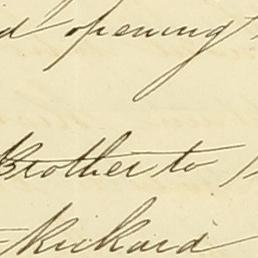 opening
Brother to
Richard